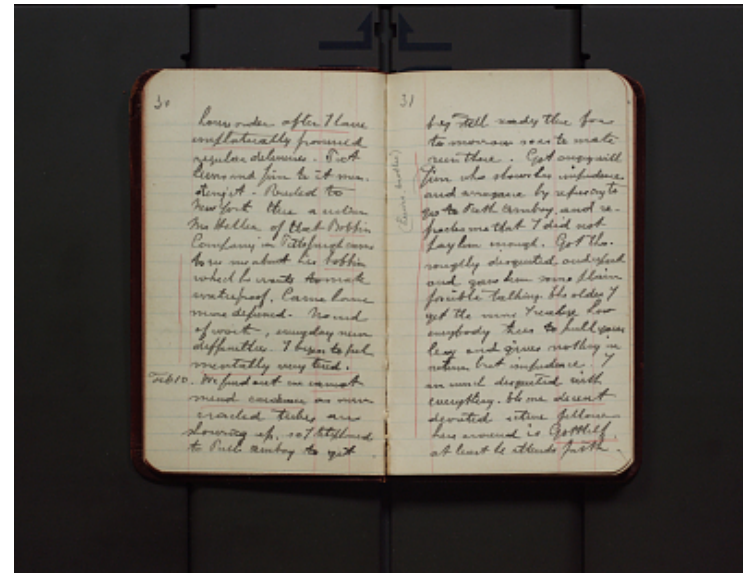 30
how order after I have
emphatically promised
regular deliveries. Put
Lewis and Jim to it un-
Rushed to
New York there a
Mr Heller of that Bobbin
Company in Pittsburgh comes
to see me about his bobbin
which he wants to make
waterproof. Came home
more depressed. No end
of work, everyday new
difficulties. I begin to feel
mentally very tired.
Feb 10. We find out we cannot
mend condenser as even
cracked tubes are
showing up, so I telephoned
to Perth Amboy to get
31
ready there for
to morrow so as to make
resin there. Got angry with
Jim who shows his impudence
and arrogance by refusing to
go to Perth Amboy, and re-
proaches me that I did not
pay him enough. Got tho-
roughly disgusted and
and gave him some plain
forcible talking. The older I
get the more I realize how
everybody tries to pull
and gives nothing in
return but impudence. I
am much disgusted with
everything. The one decent
devoted active fellow
here around is Gotthelf,
at least he attends